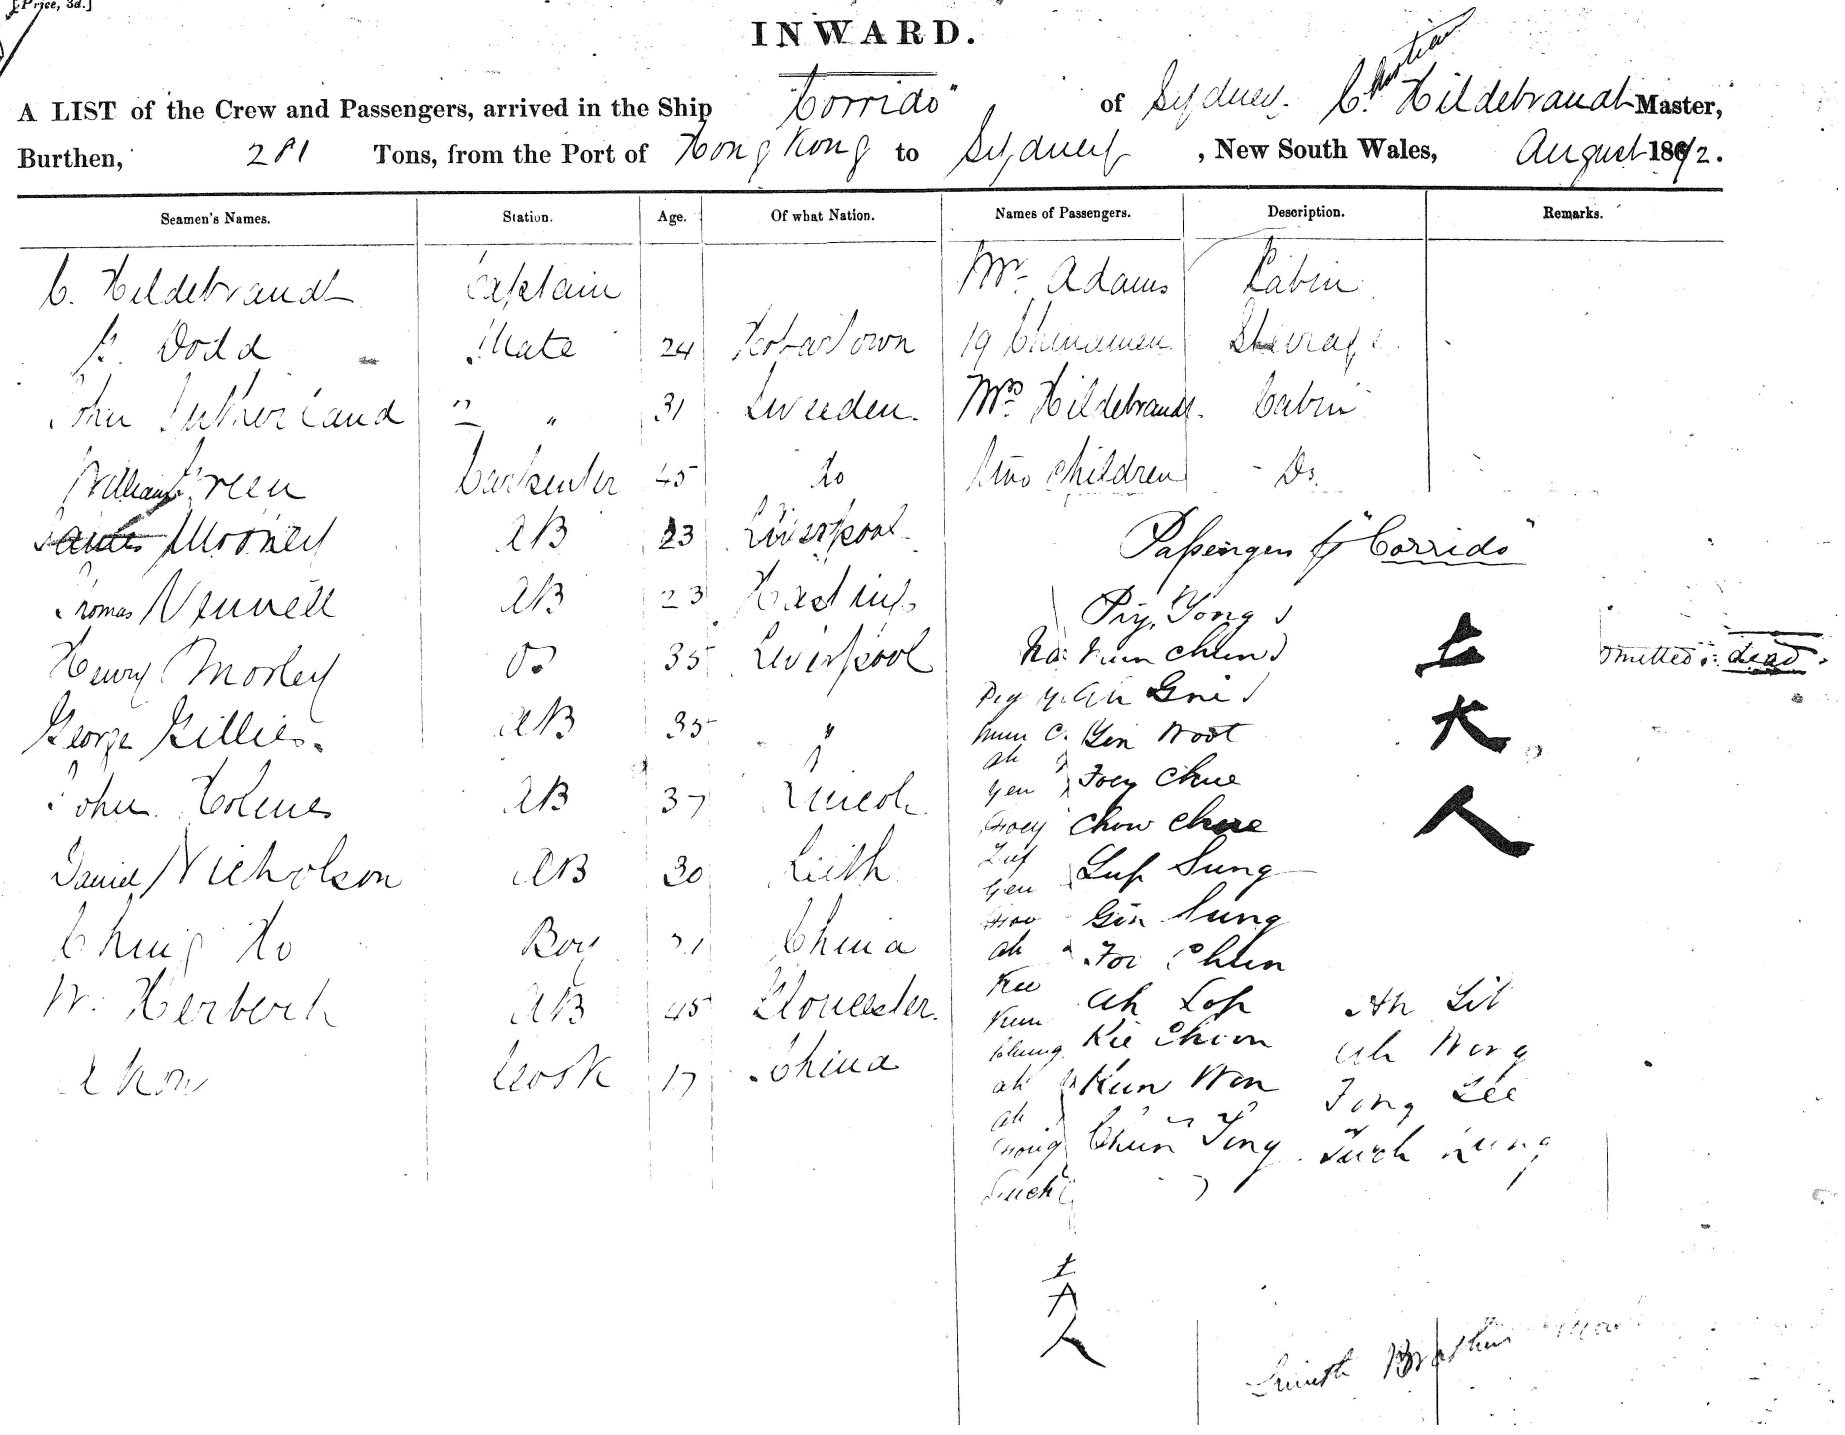 [Price, 3d.]
INWARD.
A LIST of the Crew and Passengers, arrived in the Ship "Corrido" of Sydney. C. Hildebrandt Master,
Burthen, 281 Tons, from the Port of Hong Kong to Sydney, New South Wales, August 1872.
Seamen's Names. Station. Age. Of what Nation. Names of Passengers. Description. Remarks.
C. Hildebrandt Captain Mr. Adams Cabin
Dodd Mate 24 Hobartown 19 Chinamen Steerage
John Sutherland " " 31 Sweeden. Mrs Hildebrandt. Cabin
William Green Carpenter 45 do two children Do.
James Mooney AB 23 Liverpool
Passengers p "Corrido"
Thomas Vennell AB 23 Hastings
Henry Morley Do 35 Liverpool
George Gillies. AB 35 "
John Holmes AB 37 Lincoln
Daniel Nicholson AB 30 Leith
Ching Ho Boy 21 China
W. Herbert AB 45 Gloucester.
Cook 17 China
Yong
Chun
omitted: dead
Gin Woot
Foey Chue
Chow Chue
Lup Sung
Gin Sung
Foi Chun
Ah Lop Ah Sit
Kie Choon Ah Wong
Kun Won Fong Lee
Chun Fong Tuck Lung
土
大
人
ah
yen
ah
Kee
Kun
ah
ah
Tuck
土
大
人
Smith Brothers